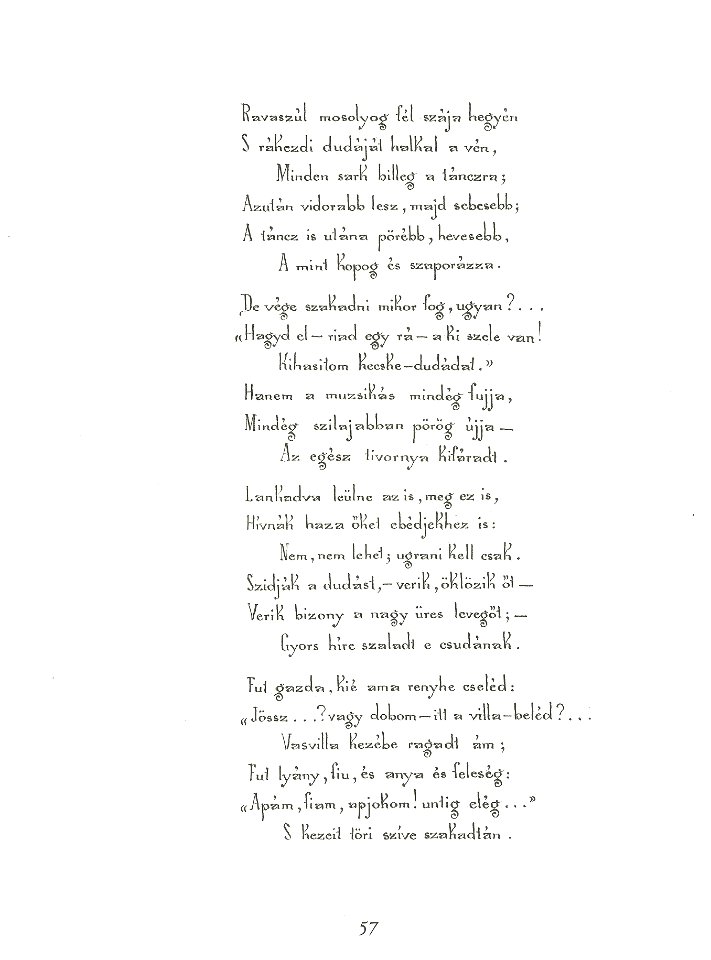 Ravaszúl mosolyog fél szája hegyén
S rákezdi dudáját halkal a vén,
Minden sark billeg a tánczra;
Azután vidorabb lesz, majd sebesebb;
A táncz is utána pörébb, hevesebb,
A mint kopog és szaporázza.
De vége szakadni mikor fog, ugyan?...
«Hagyd el — riad egy rá — a ki szele van!
Kihasitom kecske-dudádat.»
Hanem a muzsikás mindég fujja,
Mindég szilajabban pörög újja —
Az egész tivornya kifáradt.
Lankadva leülne az is, meg ez is,
Hívnák haza őket ebédjekhez is:
Nem, nem lehet; ugrani kell csak.
Szidják a dudást, — verik, öklözik őt —
Verik bizony a nagy üres levegőt; —
Gyors híre szaladt e csudának.
Fut gazda, kié ama renyhe cseléd:
«Jössz...? vagy dobom — itt a villa - beléd?...
Vasvilla kezébe ragadt ám;
Fut lyány, fiu, és anya és feleség:
«Apám, fiam, apjokom! untig elég...»
S kezeit töri szíve szakadtán.
57